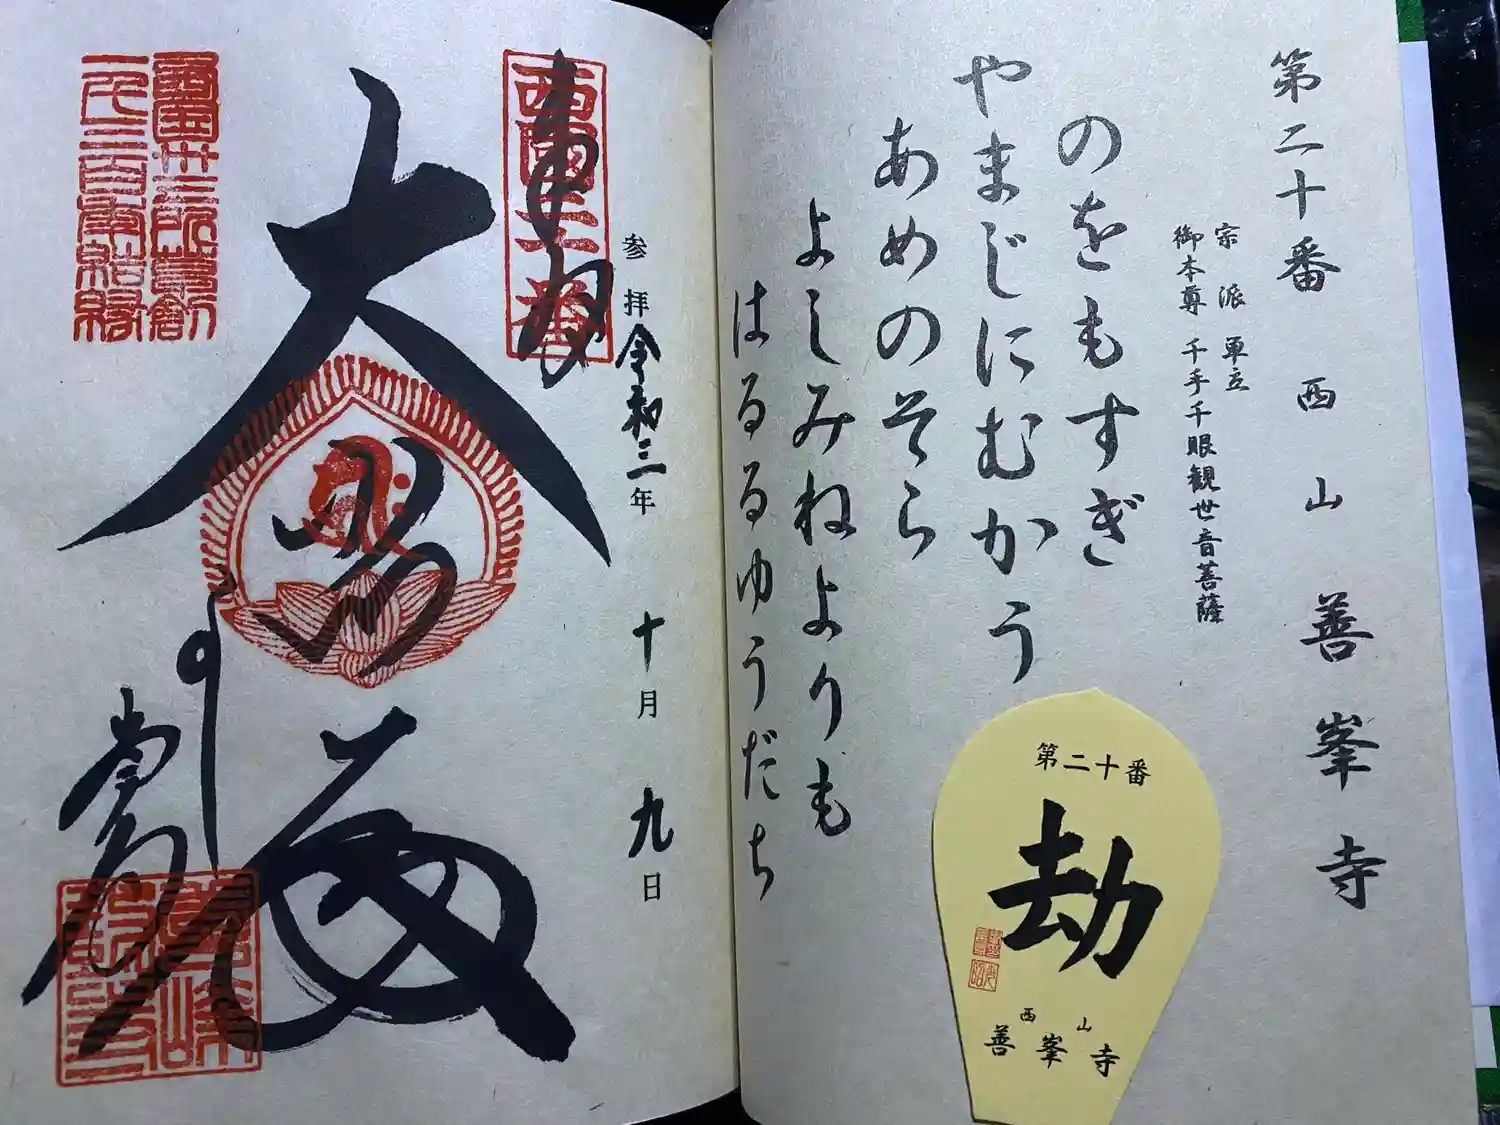 第二十番 西山 善峯寺
宗派 単立
御本尊 千手千眼観世音菩薩
のをもすぎ
やまじにむかう
あめのそら
よしみねよりも
はるるゆうだち
第二十番
劫
西山
善峯寺
参拝 令和三年 十月 九日
奉拝
西國二十番
大悲殿
西国三十三所草創
一千三百年結縁
善峰寺